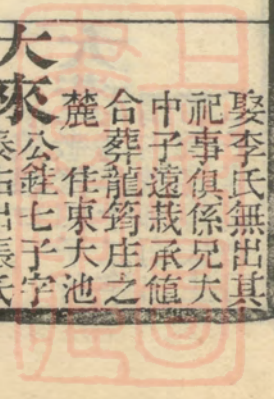 娶李氏無出其
祀事俱係兄大
中子遠莪承值
合葬龍筠庄之
麓　住東大池
大來
公銓七子字
出長氏